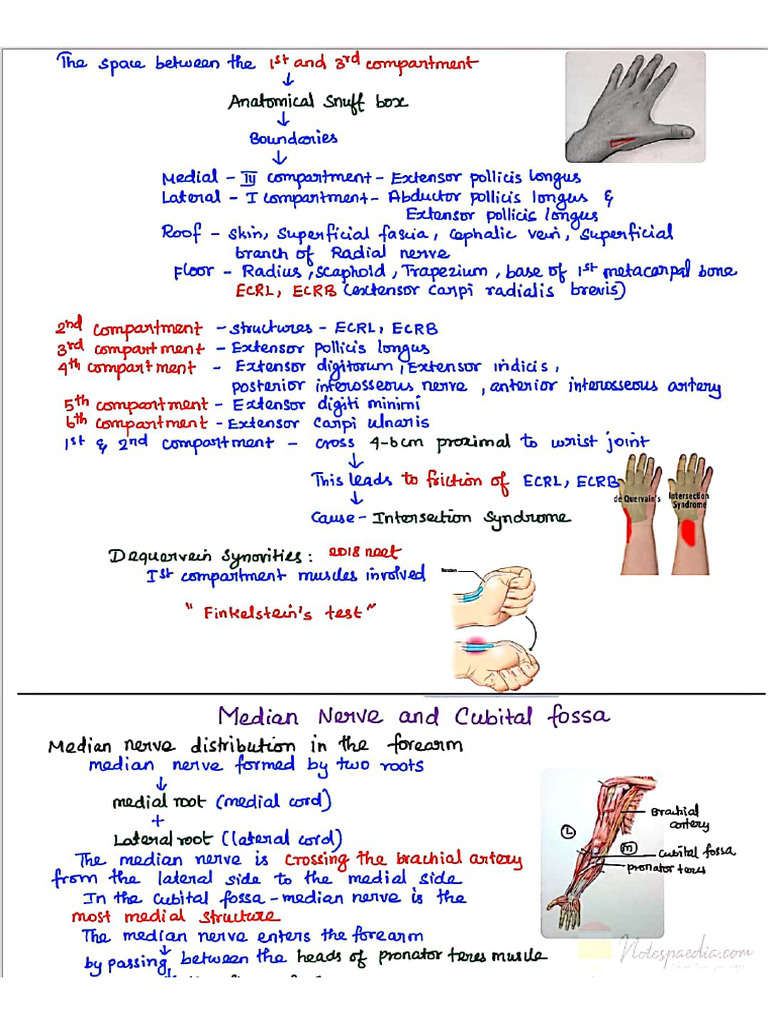 The space between the 1st and 3rd compartment
↓
Anatomical Snuff box
↓
Boundaries
↓
Medial - III compartment - Extensor pollicis longus
Lateral - I compartment - Abductor pollicis longus &
Extensor pollicis longus
Roof - Skin, Superficial fascia, Cephalic vein, Superficial
branch of Radial nerve
Floor - Radius, Scaphoid, Trapezium, base of 1st metacarpal bone
ECRL, ECRB (extensor carpi radialis brevis)
2nd compartment - structures - ECRL, ECRB
3rd compartment - Extensor pollicis longus
4th compartment - Extensor digitorum, Extensor indicis,
posterior interosseous nerve, anterior interosseous artery
5th compartment - Extensor digiti minimi
6th compartment - Extensor carpi ulnaris
1st & 2nd compartment - cross 4-6cm proximal to wrist joint
↓
This leads to friction of ECRL, ECRB
↓
Cause - Intersection Syndrome
de Quervain's
Intersection
Syndrome
Dequervein Synovities: 2018 neet
Ist compartment muscles involved
"Finkelstein's test"
Tendon
Median Nerve and Cubital fossa
Median nerve distribution in the forearm
median nerve formed by two roots
↓
medial root (medial cord)
+
Lateral root (lateral cord)
The median nerve is crossing the brachial artery
from the lateral side to the medial side
In the cubital fossa - median nerve is the
most medial structure
The median nerve enters the forearm
↓
by passing between the heads of pronator teres muscle
Brachial
artery
L
M
cubital fossa
pronator teres
Notespaedia.com